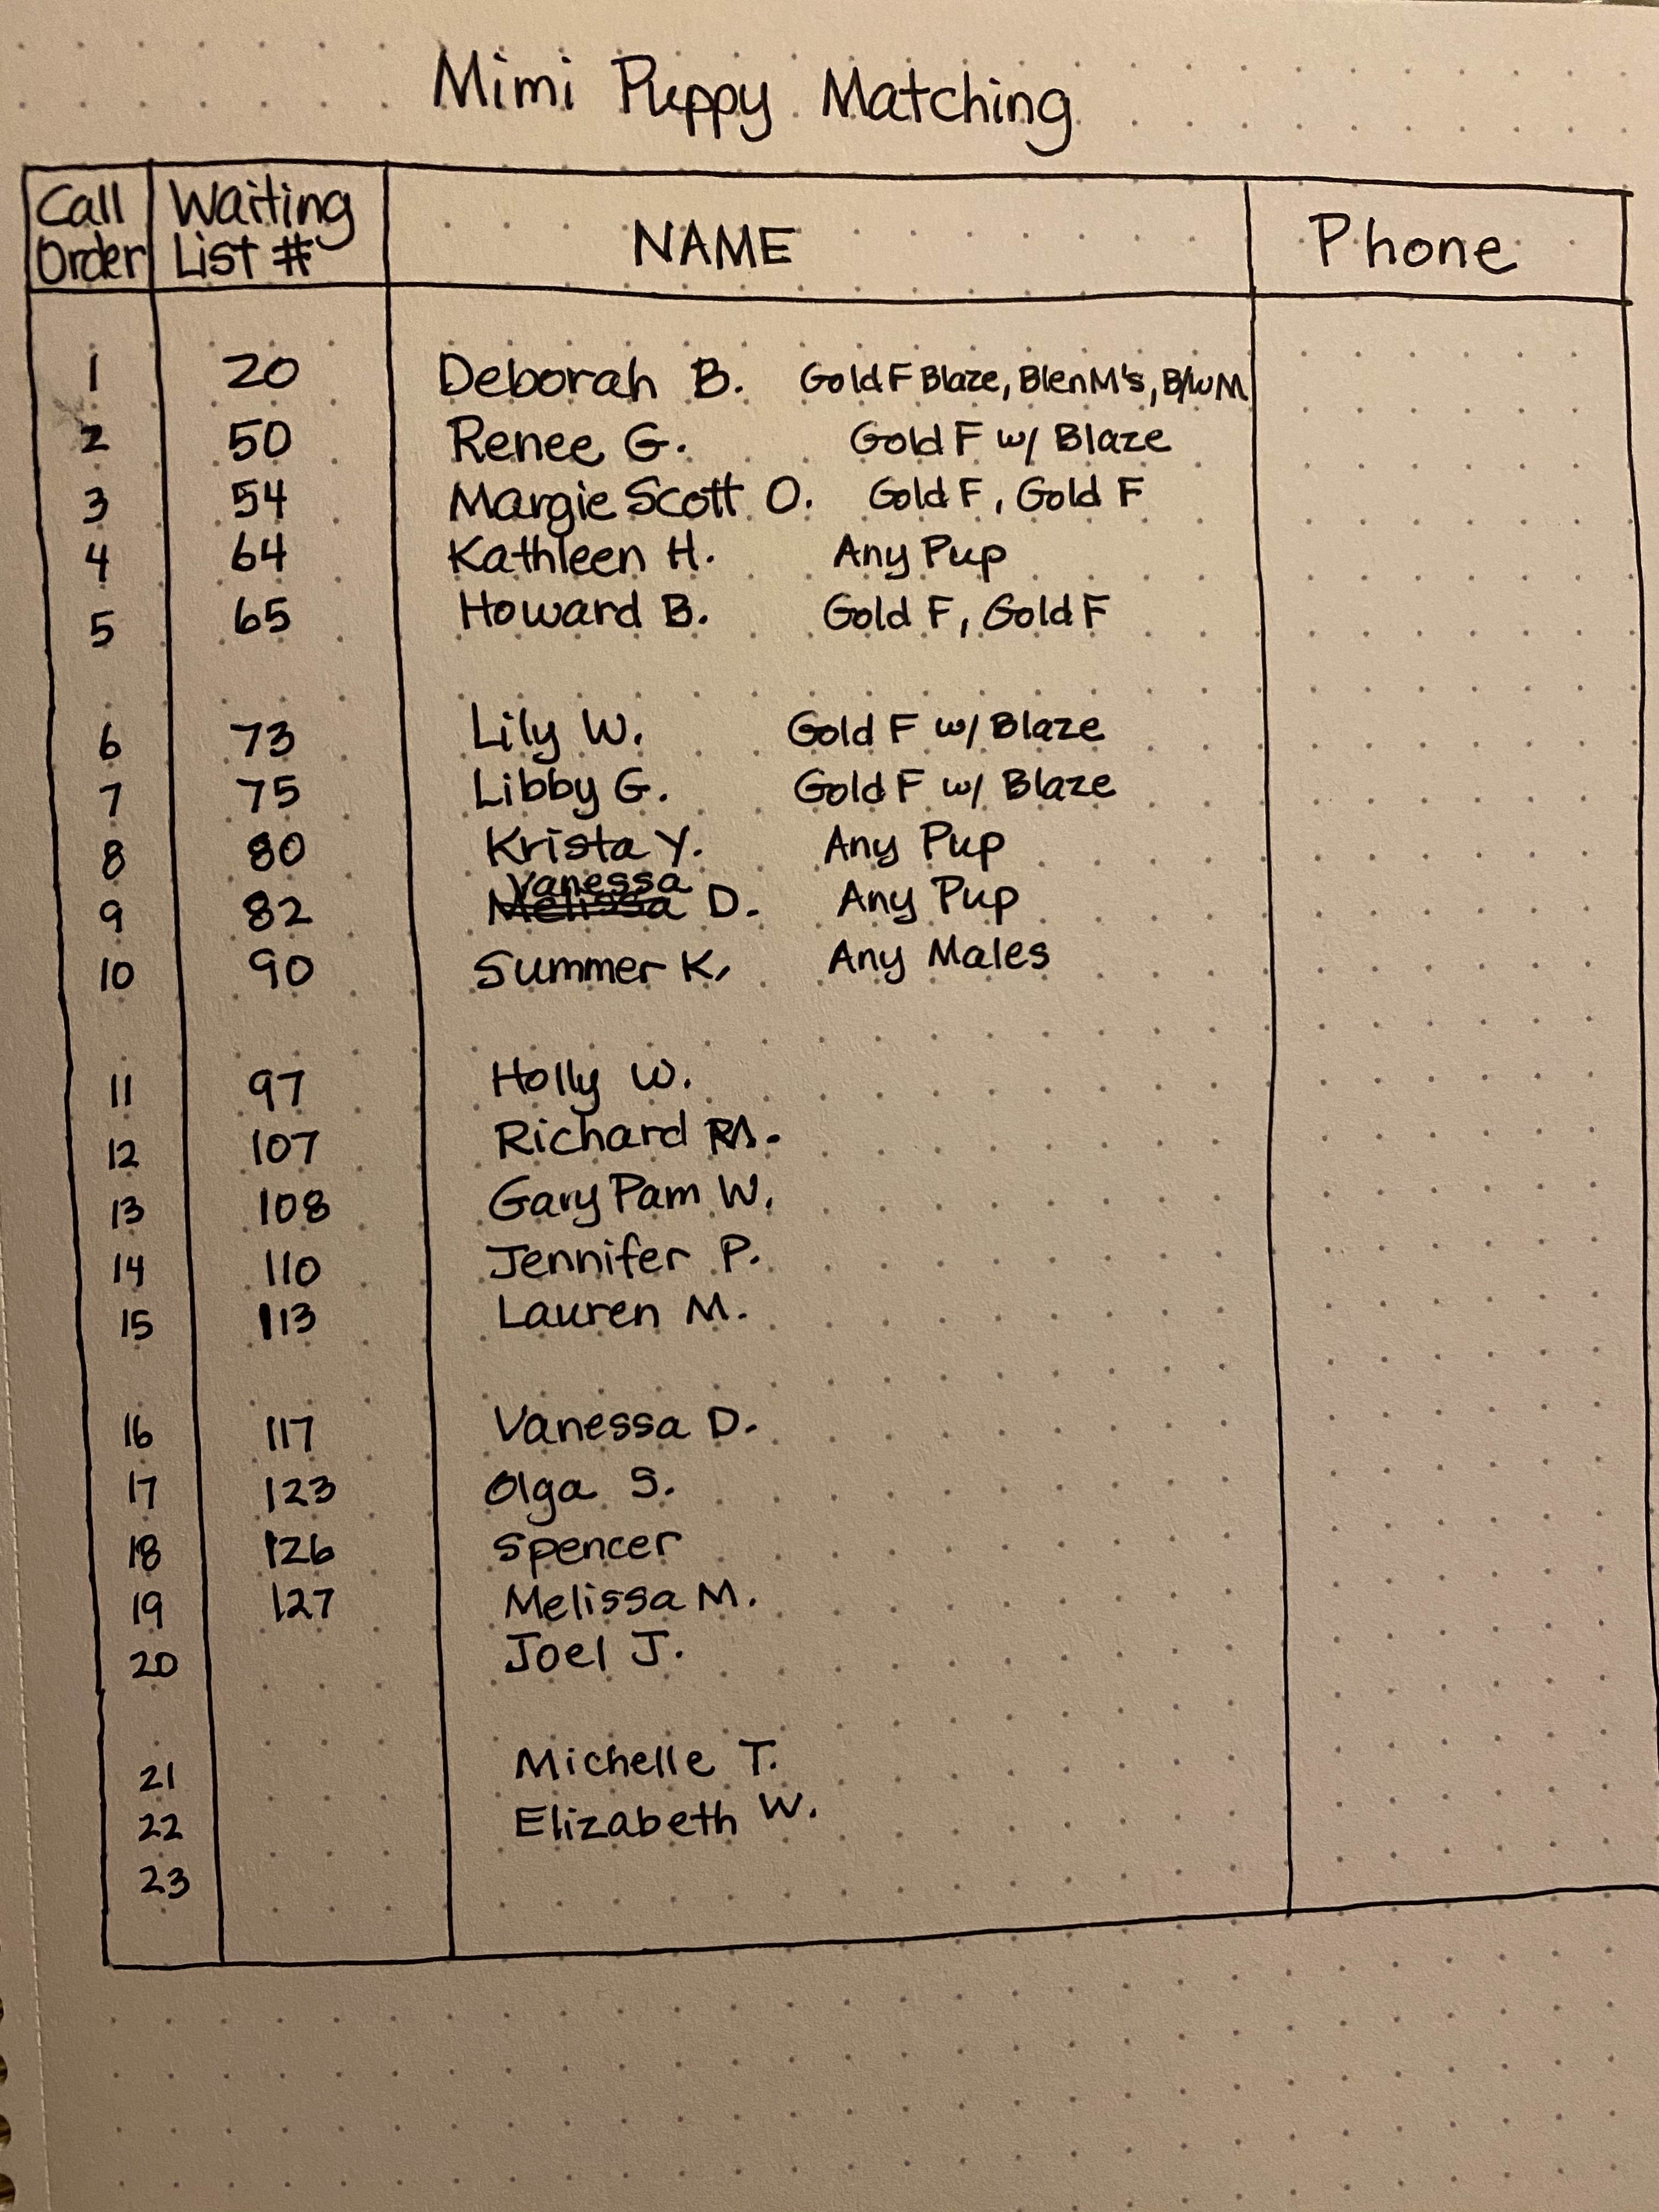 Mimi Puppy Matching
Call Order Waiting List # NAME Phone
1 20 Deborah B. Gold F Blaze, Blen M's, B/W M
2 50 Renee G. Gold F w/ Blaze
3 54 Margie Scott O. Gold F, Gold F
4 64 Kathleen H. Any Pup
5 65 Howard B. Gold F, Gold F
6 73 Lily W. Gold F w/ Blaze
7 75 Libby G. Gold F w/ Blaze
8 80 Krista Y. Any Pup
Vanessa
9 82 Melissa D. Any Pup
10 90 Summer K. Any Males
11 97 Holly W.
12 107 Richard
13 108 Gary Pam W.
14 110 Jennifer P.
15 113 Lauren M.
16 117 Vanessa D.
17 123 Olga S.
18 126 Spencer
19 127 Melissa M.
20 Joel J.
21 Michelle T.
22 Elizabeth W.
23